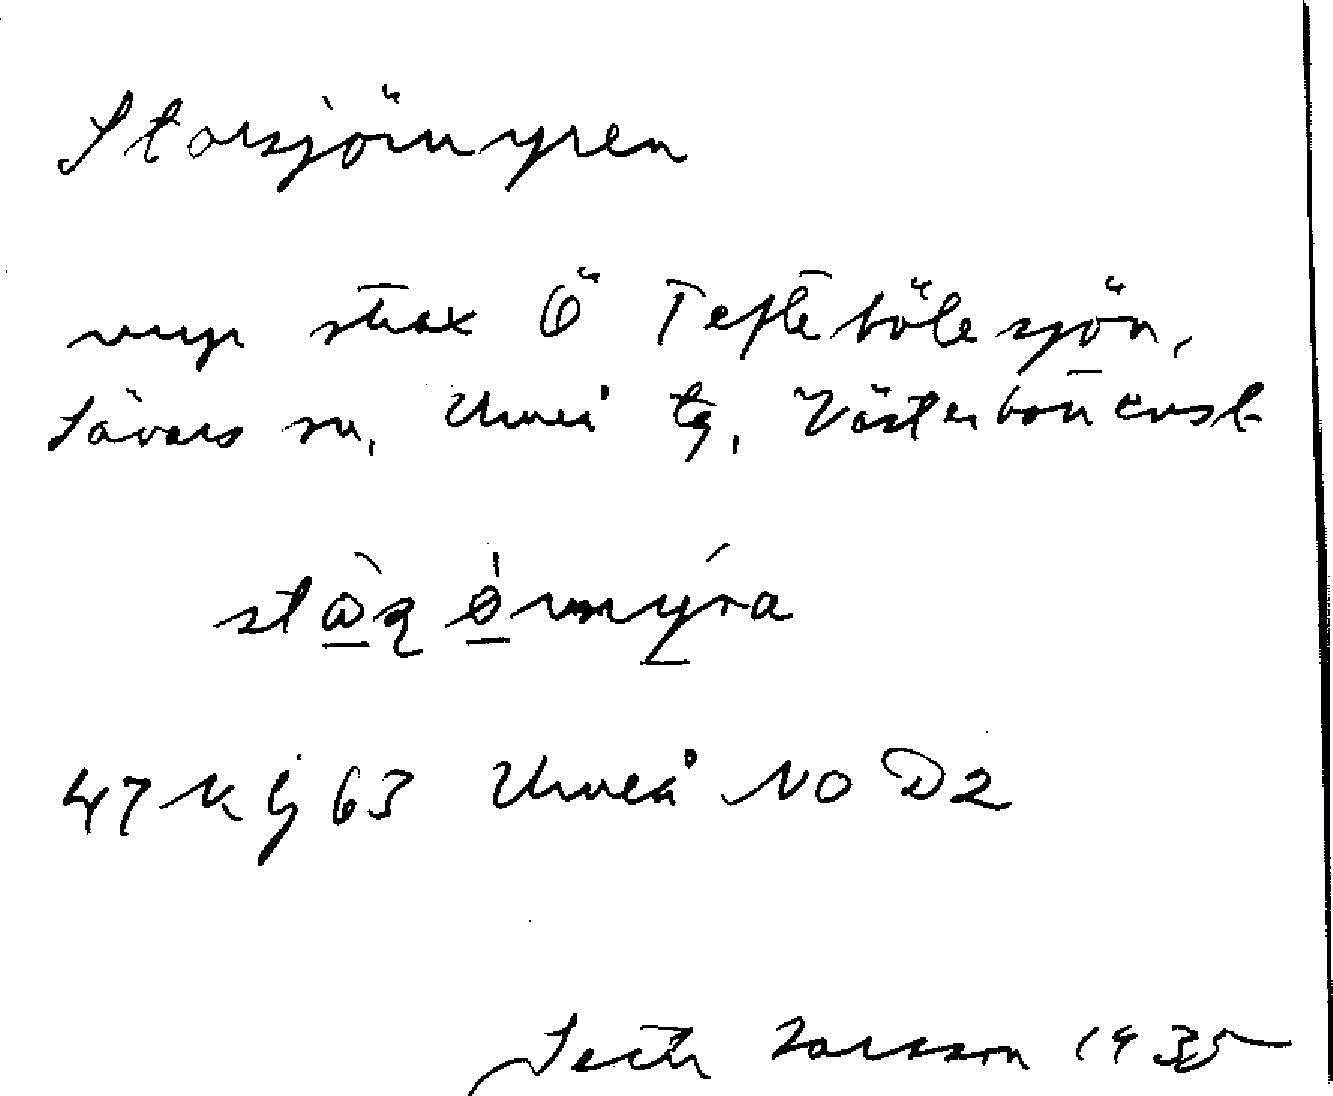 Storsjömyren
myr strax Ö Teftebölesjön,
Sävars sn, Umeå tg, Västerbottens l
47 Kj 63 Umeå NO D2
Seth Larsson 1935